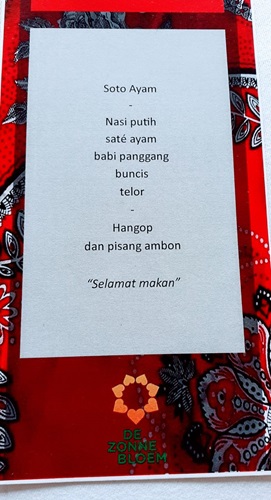 Soto Ayam
-
Nasi putih
saté ayam
babi panggang
buncis
telor
-
Hangop
dan pisang ambon
"Selamat makan"
DE
ZONNE
BLOEM